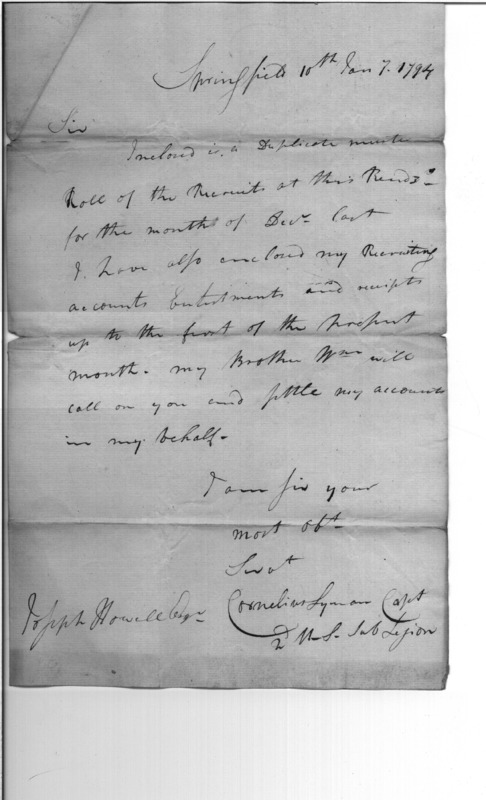 Springfield 10th Jany. 1794
Sir
Inclosed is a Duplicate muster
Roll of the Recruits at this Rendzs
for the month of Decr. last
I have also enclosed my Recruiting
accounts Enlistments and receipts
up to the first of the present
month. my Brother Wm will
call on you and settle my accounts
in my behalf.
I am Sir your
most Obt
Servt
Cornelius Lyman Capt
2d U S. Sub Legion
Joseph Howell Esqr